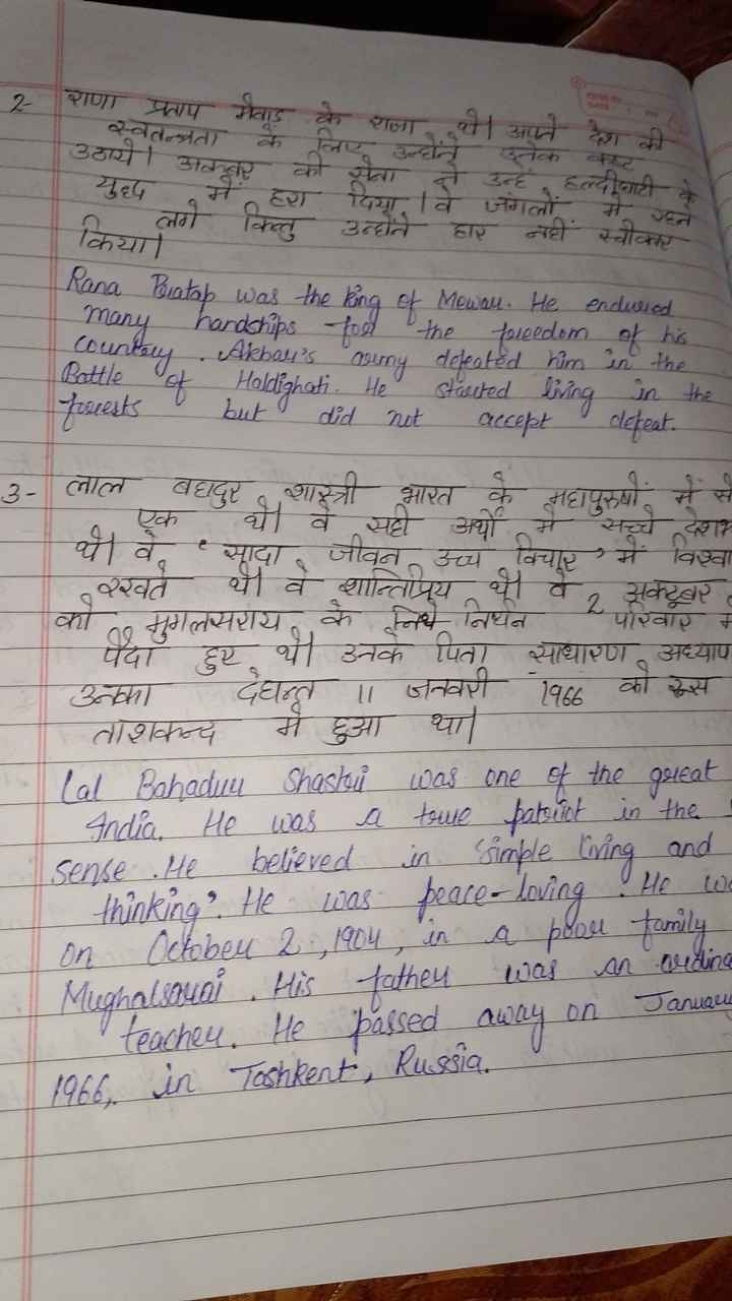 2- राणा प्रताप मेवाड़ के राजा थे। अपने देश की
स्वतन्त्रता के लिए उन्होंने अनेक कष्ट
उठाये। अकबर की सेना ने उन्हें हल्दीघाटी के
युद्ध में हरा दिया। वे जंगलों में रहने
लगे किन्तु उन्होंने हार नहीं स्वीकार
किया।
Rana Pratap was the king of Mewar. He endured
many hardships for the freedom of his
country. Akbar's army defeated him in the
Battle of Haldighati. He started living in the
forests but did not accept defeat.
3- लाल बहादुर शास्त्री भारत के महापुरुषों में से
एक थे। वे सही अर्थों में सच्चे
थे। वे 'सादा जीवन उच्च विचार' में
रखते थे। वे शान्तिप्रिय थे। वे 2 अक्टूबर
को मुगलसराय के निर्धन परिवार
पैदा हुए थे। उनके पिता साधारण
उनका देहान्त 11 जनवरी 1966 को रूस
ताशकन्द में हुआ था।
Lal Bahadur Shastri was one of the great
India. He was a true patriot in the
sense. He believed in 'simple living and
thinking'. He was peace-loving. He
on October 2, 1904, in a poor family
Mughalsarai. His father was an
teacher. He passed away on January
1966, in Tashkent, Russia.